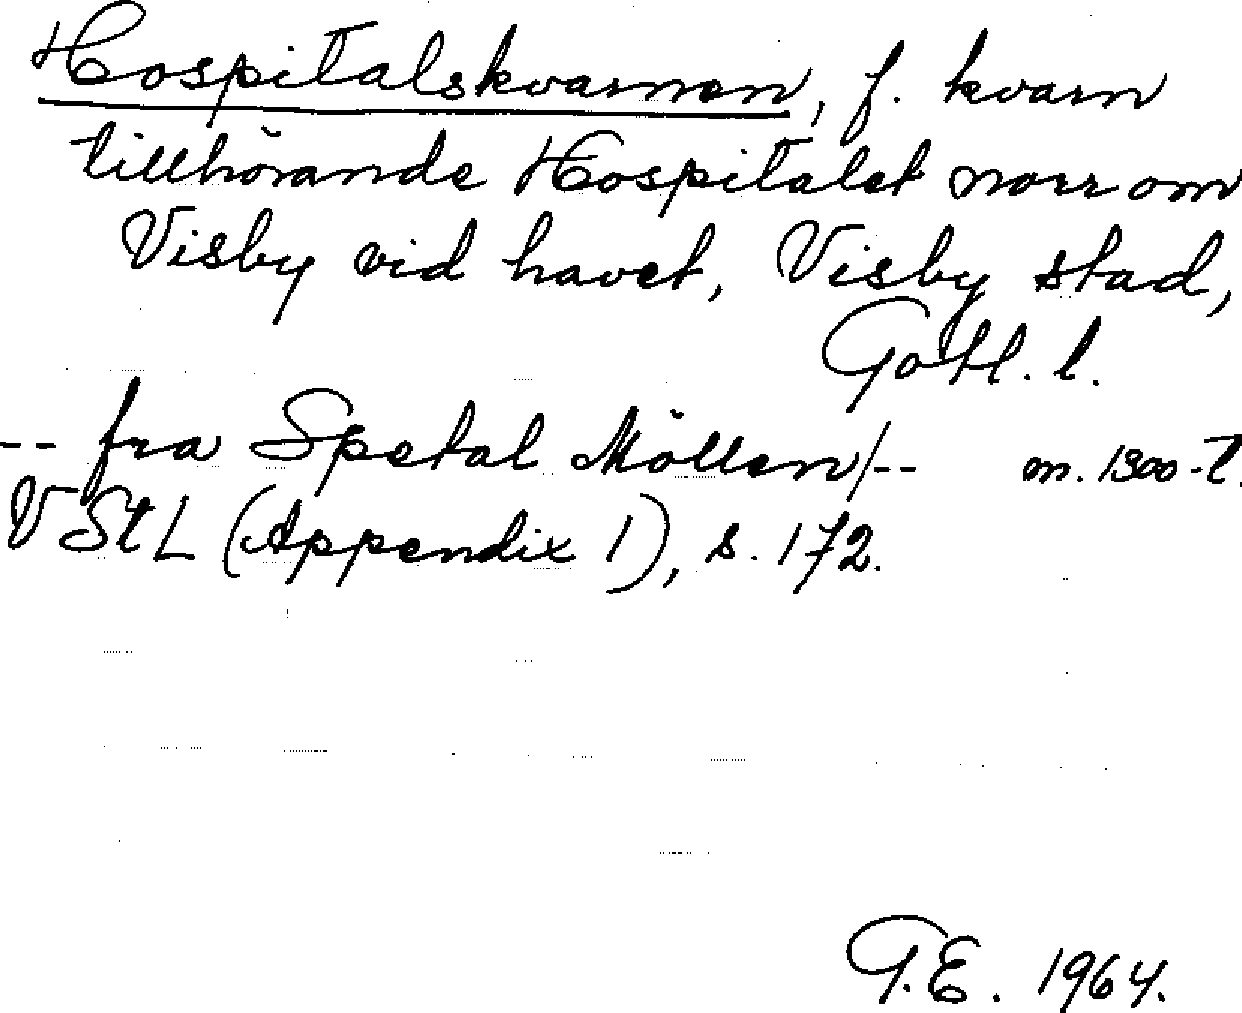 Hospitalskvarnen, f. kvarn
tillhörande Hospitalet norr om
Visby vid havet, Visby stad,
Gotl. l.
-- fra Spetal Möllen/-- m. 1300-t.
VStL (Appendix 1), s. 172.
G.E. 1964.